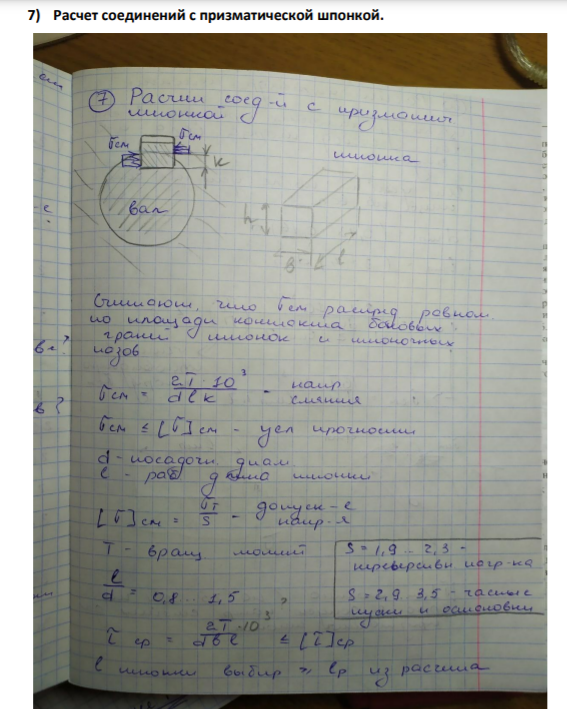 7) Расчет соединений с призматической шпонкой.
⑦ Расчёт соед-й с призматич
шпонкой
σсм σсм
K
шпонка
вал
h
в l
Считают, что σсм распред равном.
по площади контакта боковых
граней шпонок и шпоночных
пазов
в-?
σсм = 2T·10³ / d l k - напр
смятия
в?
σсм ≤ [σ]см - усл прочности
d - посадочн диам
l - раб длина шпонки
[σ]см = σт / S - допуск-е
напр-я
T - вращ момент
S = 1,9 .. 2,3 -
нереверсивн нагр-ка
l / d = 0,8 .. 1,5
S = 2,9 3,5 - частые
пуски и остановки
τ ср = 2T·10³ / d b l ≤ [τ]ср
l шпонки выбир ≥ lр из расчета